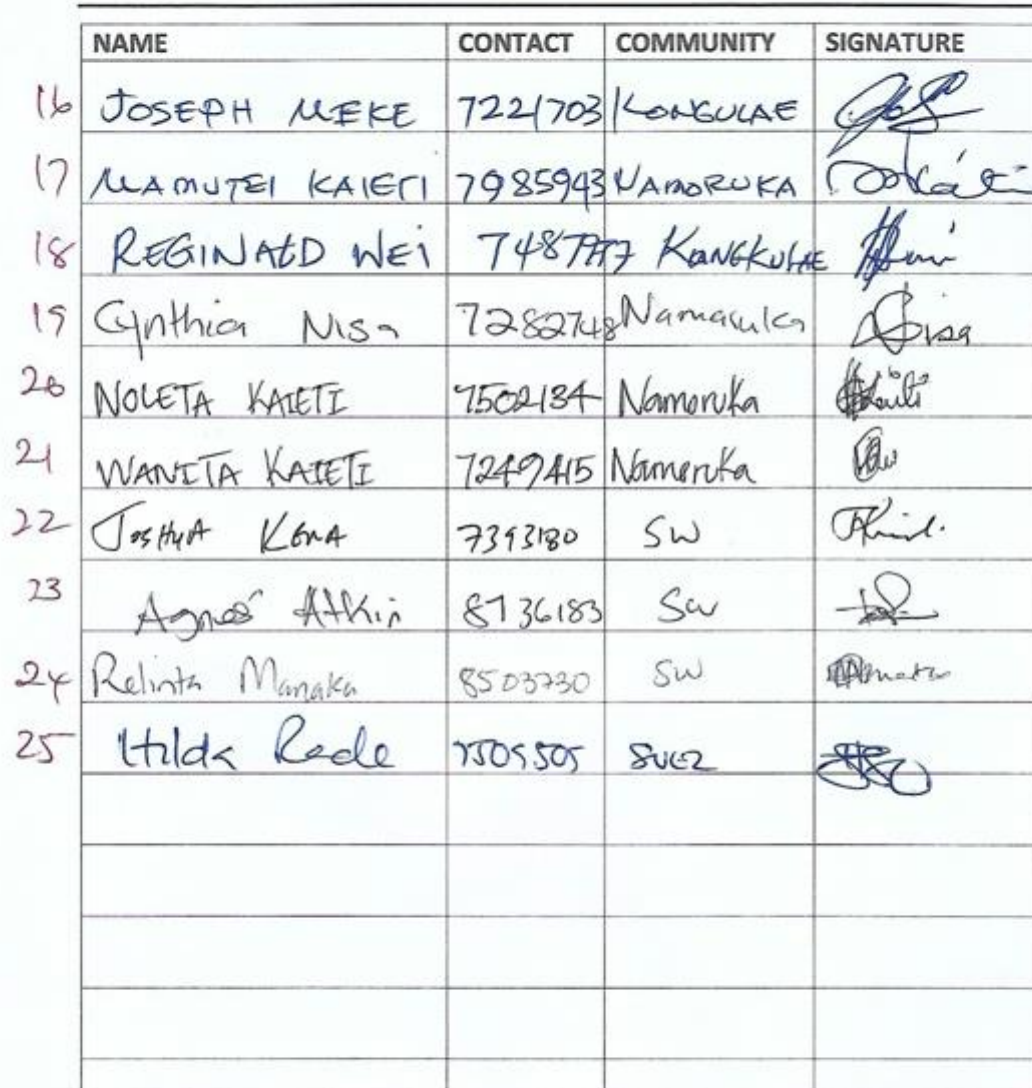 NAME CONTACT COMMUNITY SIGNATURE
16 JOSEPH MEKE 7221703 KONGULAE
17 MAMUTEI KAIETI 7985943 NAMORUKA
18 REGINALD WEI KONGKULAE
19 Cynthia Nisa 7282748 Namaruka
20 NOLETA KAIETI 7502134 Namoruka
21 WANITA KAIETI 7249415 Namoruka
22 JOSHUA KEMA 7393180 SW
23 Agnes Atkin 8736183 SW
24 Relinta Manaka 8503730 SW
25 Hilda Rade 7505505 SUEZ